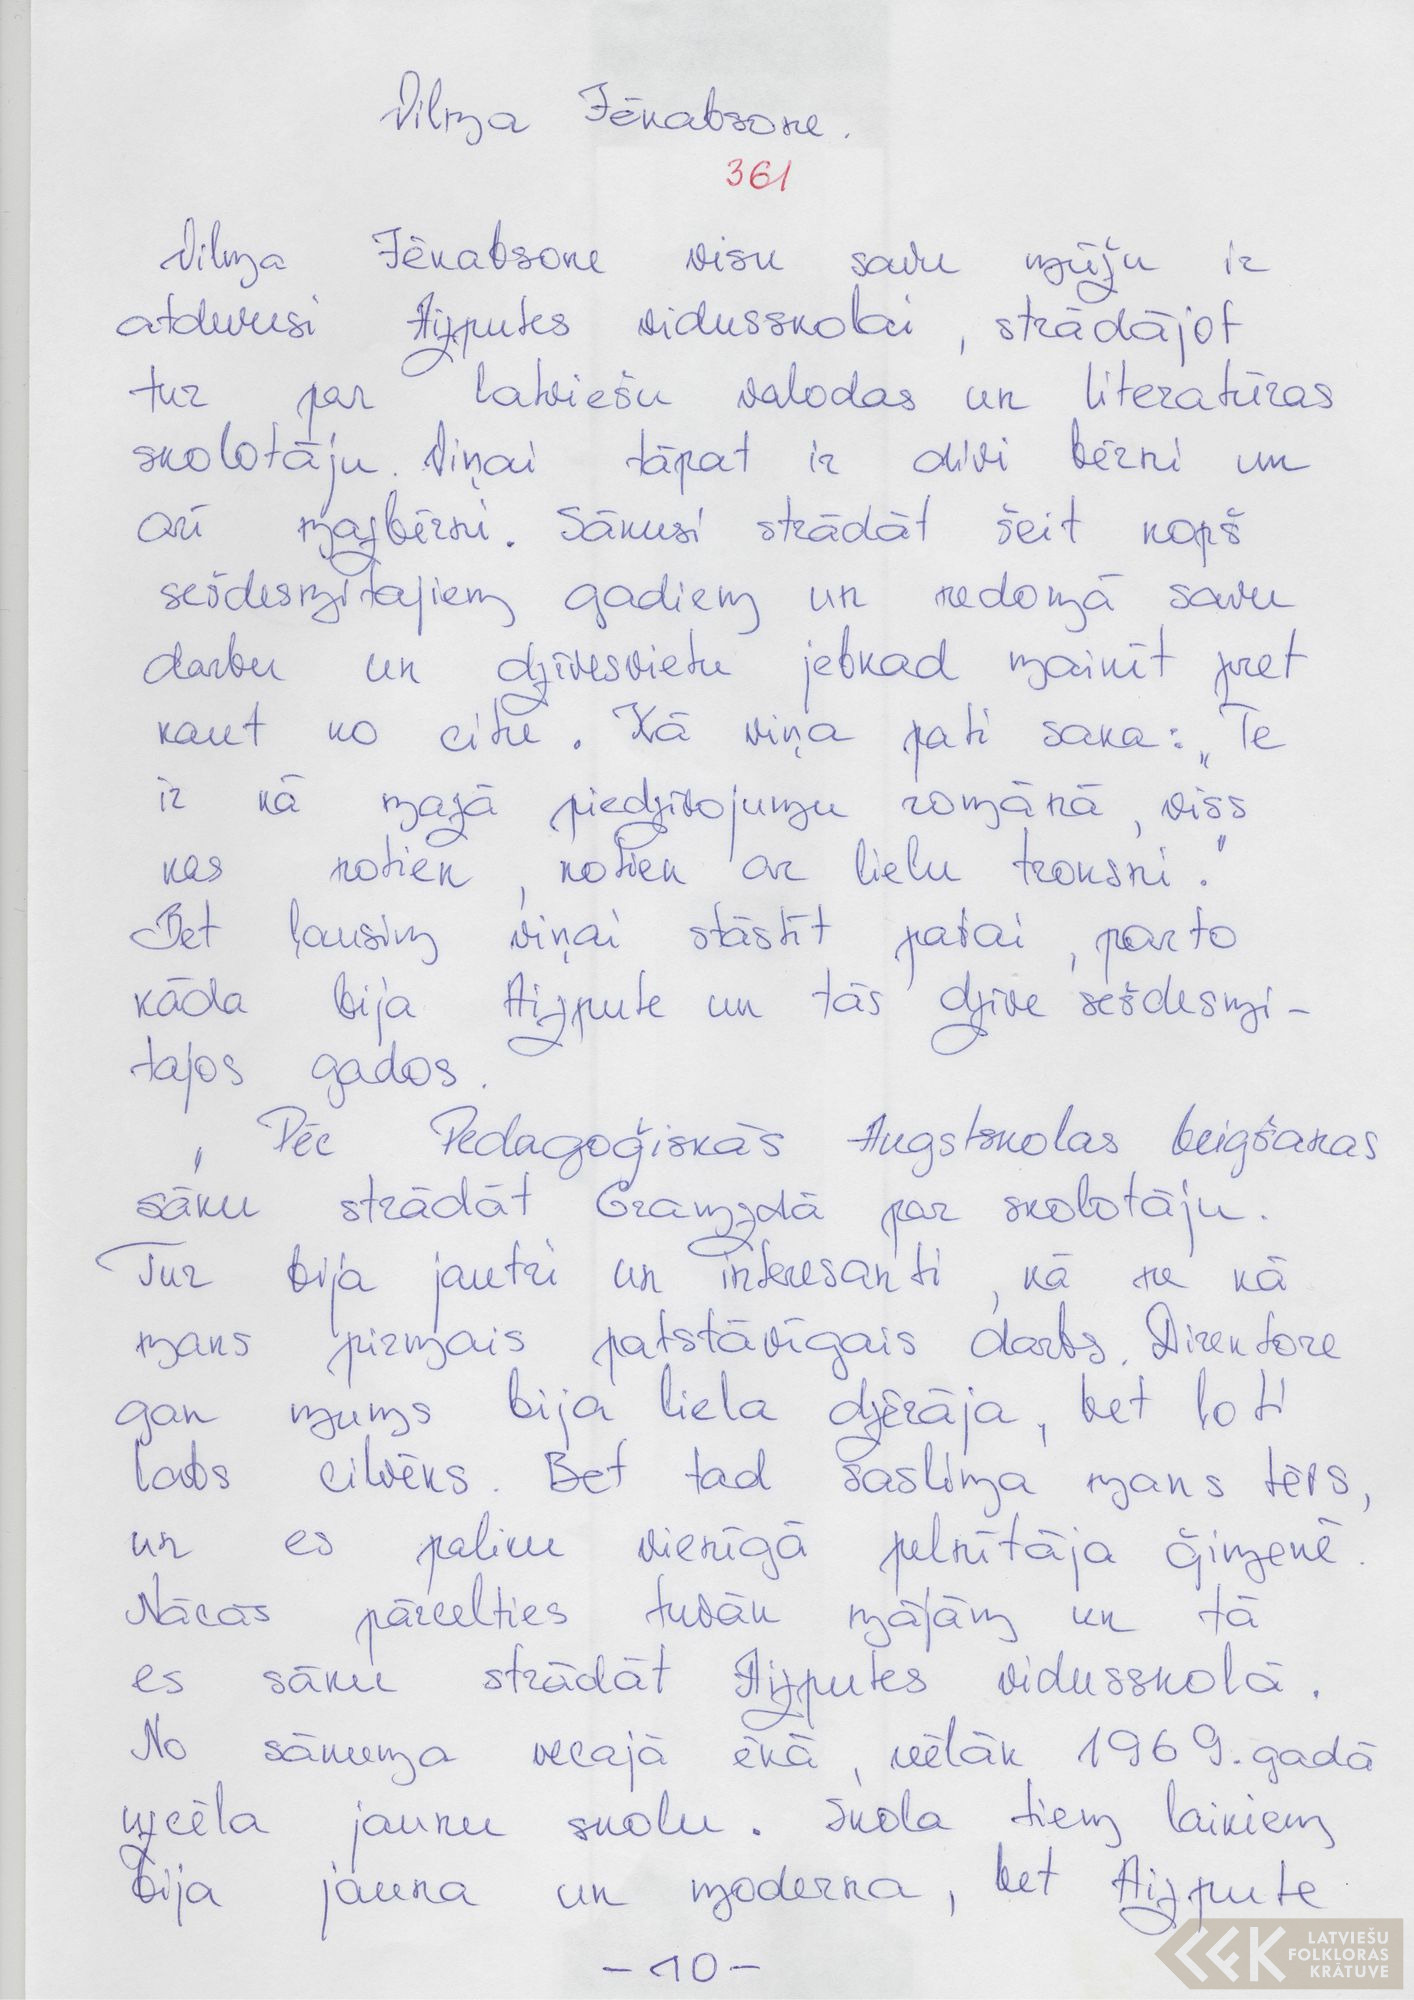 Vilma Jēkabsone.
361
Vilma Jēkabsone visu savu mūžu ir
atdevusi Aizputes vidusskolai, strādājot
tur par latviešu valodas un literatūras
skolotāju. Viņai tāpat ir divi bērni un
arī mazbērni. Sākusi strādāt šeit kopš
sešdesmitajiem gadiem un nedomā savu
darbu un dzīvesvietu jebkad mainīt pret
kaut ko citu. Kā viņa pati saka: „Te
ir kā mazā piedzīvojumu romānā, viss
kas notiek, notiek ar lielu troksni."
Bet ļausim viņai stāstīt pašai, par to
kāda bija Aizpute un tās dzīve sešdesmi-
tajos gados.
„Pēc Pedagoģiskās Augstskolas beigšanas
sāku strādāt Gramzdā par skolotāju.
Tur bija jautri un interesanti, kā ne kā
mans pirmais patstāvīgais darbs. Direktore
gan mums bija liela dzērāja, bet ļoti
labs cilvēks. Bet tad saslima mans tēvs,
un es paliku vienīgā pelnītāja ģimenē.
Nācās pārcelties tuvāk mājām un tā
es sāku strādāt Aizputes vidusskolā.
No sākuma vecajā ēkā, vēlāk 1969. gadā
uzcēla jaunu skolu. Skola tiem laikiem
bija jauna un moderna, bet Aizpute
- 10 -
LATVIEŠU
FOLKLORAS
KRĀTUVE